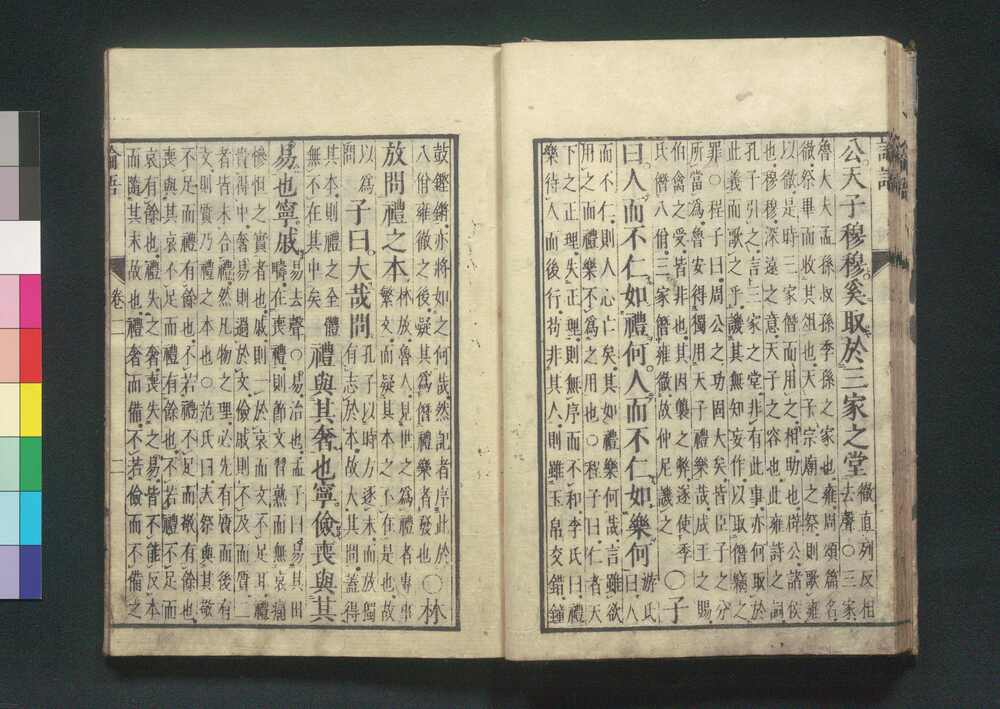 公天子穆穆奚取於三家之堂
徹直列反相
去聲○三家
魯大夫孟孫叔孫季孫之家也雍周頌篇名
徹祭畢而收其俎也天子宗廟之祭則歌雍
以徹是時三家僭而用之相助也辟公諸侯
也穆穆深遠之意天子之容也此雍詩之詞
孔子引之言三家之堂非有此事亦何取於
此義而歌之乎譏其無知妄作以取僭竊之
罪○程子曰周公之功固大矣皆臣子之分
所當爲魯安得獨用天子禮樂哉成王之賜
伯禽之受皆非也其因襲之弊遂使季
氏僭八佾三家僭雍徹故仲尼譏之
○子
曰人而不仁如禮何人而不仁如樂何
游氏
曰人
而不仁則人心亡矣其如禮樂何哉言雖欲
用之而禮樂不爲之用也○程子曰仁者天
下之正理失正理則無序而不和李氏曰禮
樂待人而後行苟非其人則雖玉帛交錯鐘
鼓鏗鏘亦將如之何哉然記者序此於
八佾雍徹之後疑其爲僭禮樂者發也
○林
放問禮之本
林放魯人見世之爲禮者專事
繁文而疑其本之不在是也故
以爲
問
子曰大哉問
孔子以時方逐末而放獨
有志於本故大其問蓋得
其本則禮之全體
無不在其中矣
禮與其奢也寧儉喪與其
易也寧戚
易去聲○易治也孟子曰易其田
疇在喪禮則節文習熟而無哀痛
慘怛之實者也戚則一於哀而文不足耳禮
貴得中奢易則過於文儉戚則不及而質二
者皆未合禮然凡物之理必先有質而後有
文則質乃禮之本也○范氏曰夫祭與其敬
不足而禮有餘也不若禮不足而敬有餘也
喪與其哀不足而禮有餘也不若禮不足而
哀有餘也禮失之奢喪失之易皆不能反本
而隨其末故也禮奢而備不若儉而不備之
論語 卷二 二